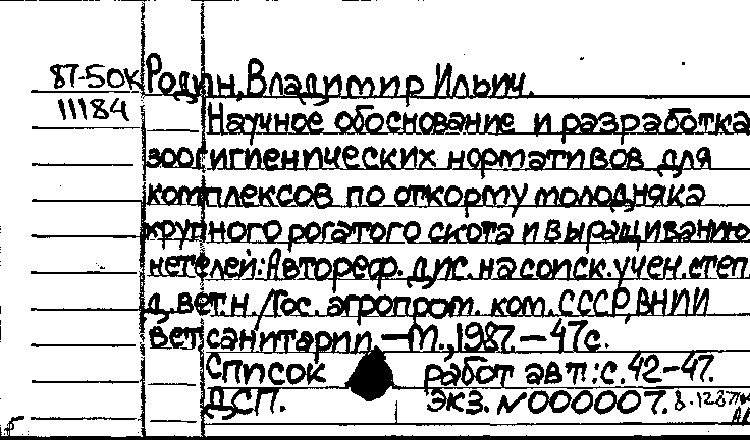 87-50К Родин, Владимир Ильич.
11184 Научное обоснование и разработка
зоогигиенических нормативов для
комплексов по откорму молодняка
крупного рогатого скота и выращиванию
нетелей: Автореф. дис. на соиск. учен. степ.
д. вет. н. / Гос. агропром. ком. СССР, ВНИИ
вет. санитарии. — М., 1987. — 47с.
Список работ авт.: с. 42-47.
ДСП. Экз. №000007.